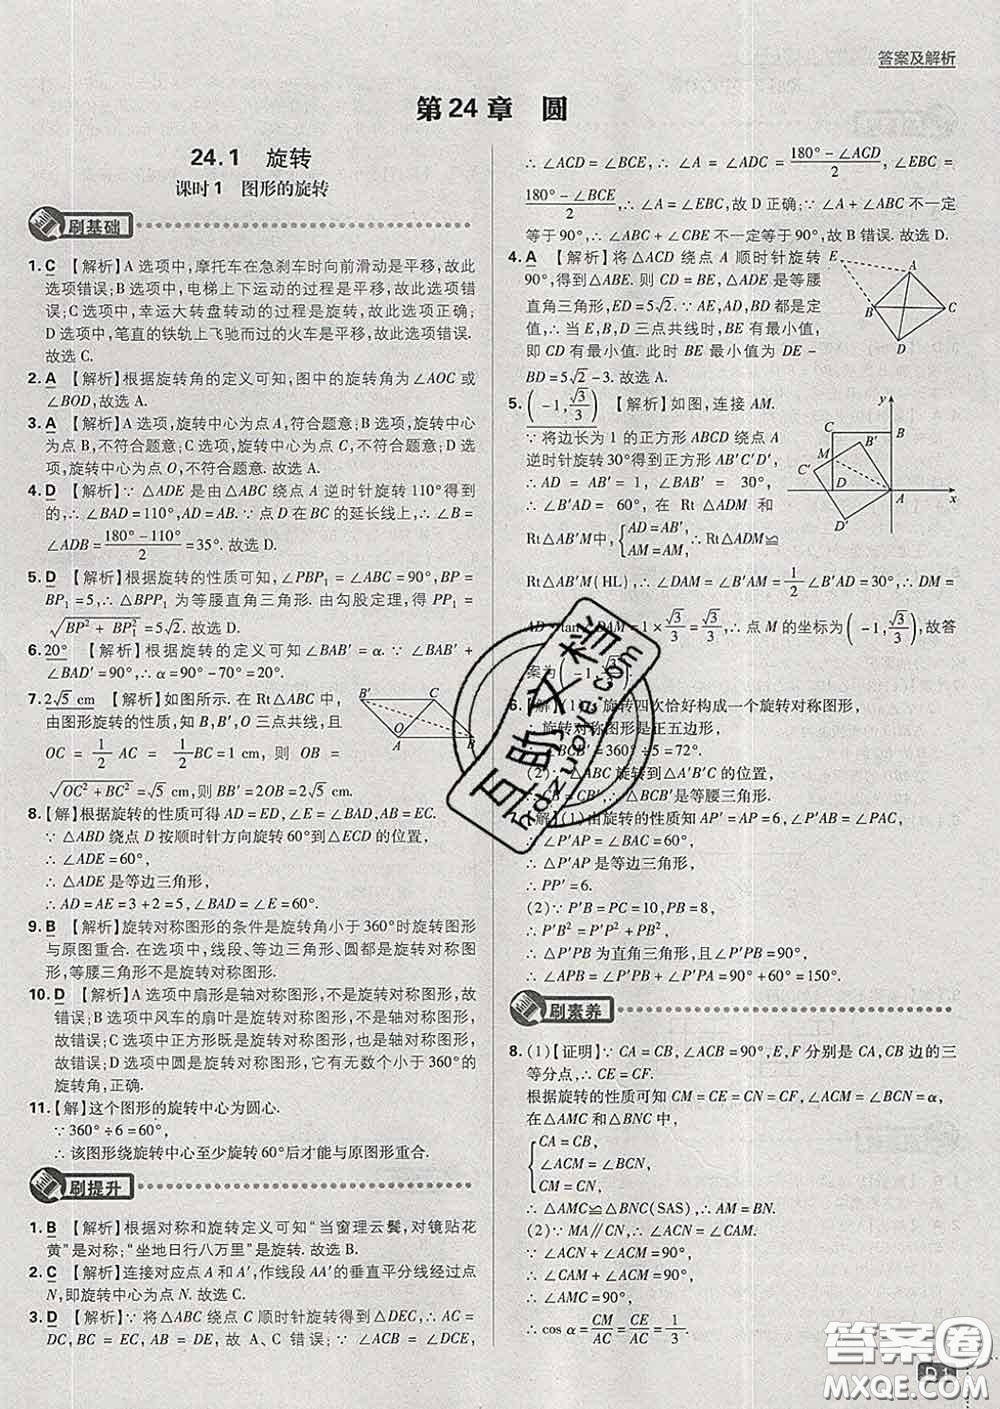 答案及解析
第24章 圆
24.1 旋转
课时1 图形的旋转
刷基础
1. C 【解析】A选项中,摩托车在急刹车时向前滑动是平移,故此
选项错误;B选项中,电梯上下运动的过程是平移,故此选项错
误;C选项中,幸运大转盘转动的过程是旋转,故此选项正确;
D选项中,笔直的铁轨上飞驰而过的火车是平移,故此选项错误.
故选C.
2. A 【解析】根据旋转角的定义可知,图中的旋转角为∠AOC或
∠BOD,故选A.
3. A 【解析】A选项,旋转中心为点A,符合题意;B选项,旋转中心
为点B,不符合题意;C选项,旋转中心为点C,不符合题意;D选
项,旋转中心为点O,不符合题意.故选A.
4. D 【解析】∵△ADE是由△ABC绕点A逆时针旋转110°得到
的,∴∠BAD=110°,AD=AB.∵点D在BC的延长线上,∴∠B=
∠ADB=(180°-110°)/2=35°.故选D.
5. D 【解析】根据旋转的性质可知,∠PBP₁=∠ABC=90°,BP=
BP₁=5,∴△BPP₁为等腰直角三角形.由勾股定理,得PP₁=
√(BP²+BP₁²)=5√2.故选D.
6. 20° 【解析】根据旋转的定义可知∠BAB′=α.∵∠BAB′+
∠B′AD=∠BAD=90°,∴α=90°-70°=20°.
7. 2√5 cm 【解析】如图所示.在Rt△ABC中,
由图形旋转的性质,知B,B′,O三点共线,且
OC=1/2AC=1/2BC=1 cm,则OB=
√(OC²+BC²)=√5 cm,则BB′=2OB=2√5 cm.
B′
C
O
A
B
8. 【解】根据旋转的性质可得AD=ED,∠E=∠BAD,AB=EC.
∵△ABD绕点D按顺时针方向旋转60°到△ECD的位置,
∴∠ADE=60°,
∴△ADE是等边三角形,
∴AD=AE=3+2=5,∠BAD=∠E=60°.
9. B 【解析】旋转对称图形的条件是旋转角小于360°时旋转图形
与原图重合.在选项中,线段、等边三角形、圆都是旋转对称图
形,等腰三角形不是旋转对称图形.
10. D 【解析】A选项中扇形是轴对称图形,不是旋转对称图形,故
错误;B选项中风车的扇叶是旋转对称图形,不是轴对称图形,
故错误;C选项中正方形既是旋转对称图形又是轴对称图形,故
错误;D选项中圆是旋转对称图形,它有无数个小于360°的
旋转角,正确.
11. 【解】这个图形的旋转中心为圆心.
∵360°÷6=60°,
∴该图形绕旋转中心至少旋转60°后才能与原图形重合.
刷提升
1. B 【解析】根据对称和旋转定义可知“当窗理云鬓,对镜贴花
黄”是对称;“坐地日行八万里”是旋转.故选B.
2. C 【解析】连接对应点A和A′,作线段AA′的垂直平分线经过点
N,即旋转中心为点N.故选C.
3. D 【解析】∵将△ABC绕点C顺时针旋转得到△DEC,∴AC=
DC,BC=EC,故A、C错误;∴∠ACB=∠DCE,
∴∠ACD=∠BCE,∴∠A=∠ADC=(180°-∠ACD)/2,∠EBC=
(180°-∠BCE)/2,∴∠A=∠EBC,故D正确;∵∠A+∠ABC不一定
等于90°,∴∠ABC+∠CBE不一定等于90°,故B错误.故选D.
4. A 【解析】将△ADC绕点A顺时针旋转
90°,得到△ABE.则CD=BE,△EAD是等腰
直角三角形,ED=5√2.∵AE,AD,BD都是定
值,∴当E,B,D三点共线时,BE有最小值,
即CD有最小值.此时BE最小值为DE-
BD=5√2-3.故选A.
E
A
B
C
D
5. (-1,√3/3) 【解析】如图,连接AM.
∵将边长为1的正方形ABCD绕点A
逆时针旋转30°得到正方形AB′C′D′,
∴AD=AB′=1,∠BAB′=30°,
∴∠B′AD=60°,在Rt△ADM和
Rt△AB′M中,{AD=AB′, AM=AM,∴Rt△ADM≌
Rt△AB′M(HL),∴∠DAM=∠B′AM=1/2∠B′AD=30°,∴DM=
AD·tan∠DAM=1×√3/3=√3/3,∴点M的坐标为(-1,√3/3),故答
案为(-1,√3/3).
y
C
B
B′
M
C′
D
A
x
D′
6. 【解】(1)∵旋转四次恰好构成一个旋转对称图形,
∴旋转对称图形是正五边形,
∴∠BCB′=360°÷5=72°.
(2)∵△ABC旋转到△A′B′C的位置,
∴BC=B′C,∴△BCB′是等腰三角形.
【解】(1)由旋转的性质知AP′=AP=6,∠P′AB=∠PAC,
∴∠P′AP=∠BAC=60°,
∴△P′AP是等边三角形,
∴PP′=6.
(2)∵P′B=PC=10,PB=8,
∴P′B²=P′P²+PB²,
∴△P′PB为直角三角形,且∠P′PB=90°,
∴∠APB=∠P′PB+∠P′PA=90°+60°=150°.
刷素养
8. (1)【证明】∵CA=CB,∠ACB=90°,E,F分别是CA,CB边的三
等分点,∴CE=CF.
根据旋转的性质可知CM=CE=CN=CF,∠ACM=∠BCN=α,
在△AMC和△BNC中,
{CA=CB,
∠ACM=∠BCN,
CM=CN,
∴△AMC≌△BNC(SAS),∴AM=BN.
(2)∵MA∥CN,∴∠ACN=∠CAM.
∵∠ACN+∠ACM=90°,
∴∠CAM+∠ACM=90°,
∴∠AMC=90°,
∴cos α=CM/AC=CE/AC=1/3.
互助文档
hdzuoye.com
答案圈
MXQE.COM
D1